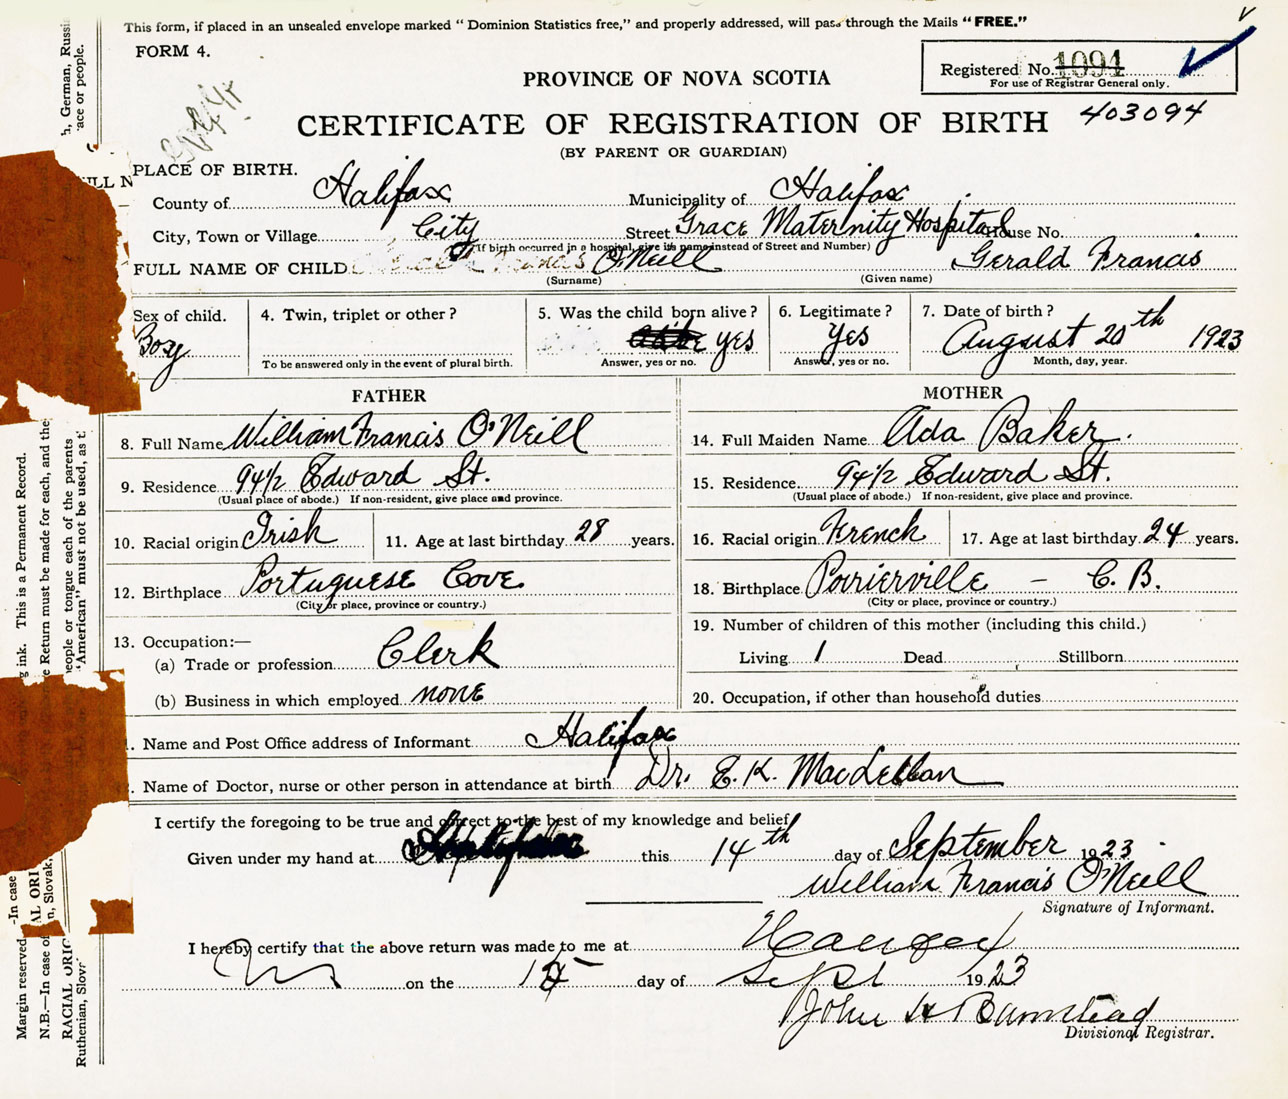 This form, if placed in an unsealed envelope marked “ Dominion Statistics free,” and properly addressed, will pass through the Mails “ FREE.”
FORM 4.
Registered No. 1094
For use of Registrar General only.
PROVINCE OF NOVA SCOTIA
403094
CERTIFICATE OF REGISTRATION OF BIRTH
(BY PARENT OR GUARDIAN)
PLACE OF BIRTH.
County of Halifax Municipality of Halifax
City, Town or Village City Street Grace Maternity Hospital House No.
(If birth occurred in a hospital, give its name instead of Street and Number)
FULL NAME OF CHILD O'Neill Gerald Francis
(Surname) (Given name)
Sex of child. 4. Twin, triplet or other ? 5. Was the child born alive ? 6. Legitimate ? 7. Date of birth ?
Boy yes Yes August 20th 1923
To be answered only in the event of plural birth. Answer, yes or no. Answer, yes or no. Month, day, year.
FATHER MOTHER
8. Full Name William Francis O'Neill 14. Full Maiden Name Ada Baker.
9. Residence 94½ Edward St. 15. Residence 94½ Edward St.
(Usual place of abode.) If non-resident, give place and province. (Usual place of abode.) If non-resident, give place and province.
10. Racial origin Irish 11. Age at last birthday 28 years. 16. Racial origin French 17. Age at last birthday 24 years.
12. Birthplace Portuguese Cove 18. Birthplace Poirierville – C. B.
(City or place, province or country.) (City or place, province or country.)
13. Occupation:— 19. Number of children of this mother (including this child.)
(a) Trade or profession Clerk Living 1 Dead Stillborn
(b) Business in which employed none 20. Occupation, if other than household duties
Name and Post Office address of Informant Halifax
Name of Doctor, nurse or other person in attendance at birth Dr. E. K. MacLellan
I certify the foregoing to be true and correct to the best of my knowledge and belief
Given under my hand at this 14th day of September 1923
William Francis O'Neill
Signature of Informant.
I hereby certify that the above return was made to me at Halifax
on the day of Sept 1923
John H Barnstead
Divisional Registrar.
h, German, Russi
ace or people.
ULL N
g ink. This is a Permanent Record.
e Return must be made for each, and the
eople or tongue each of the parents
“American” must not be used, as t
Margin reserved -In case
N.B.—In case of
AL ORI
n, Slovak,
RACIAL ORIG
Ruthenian, Slov